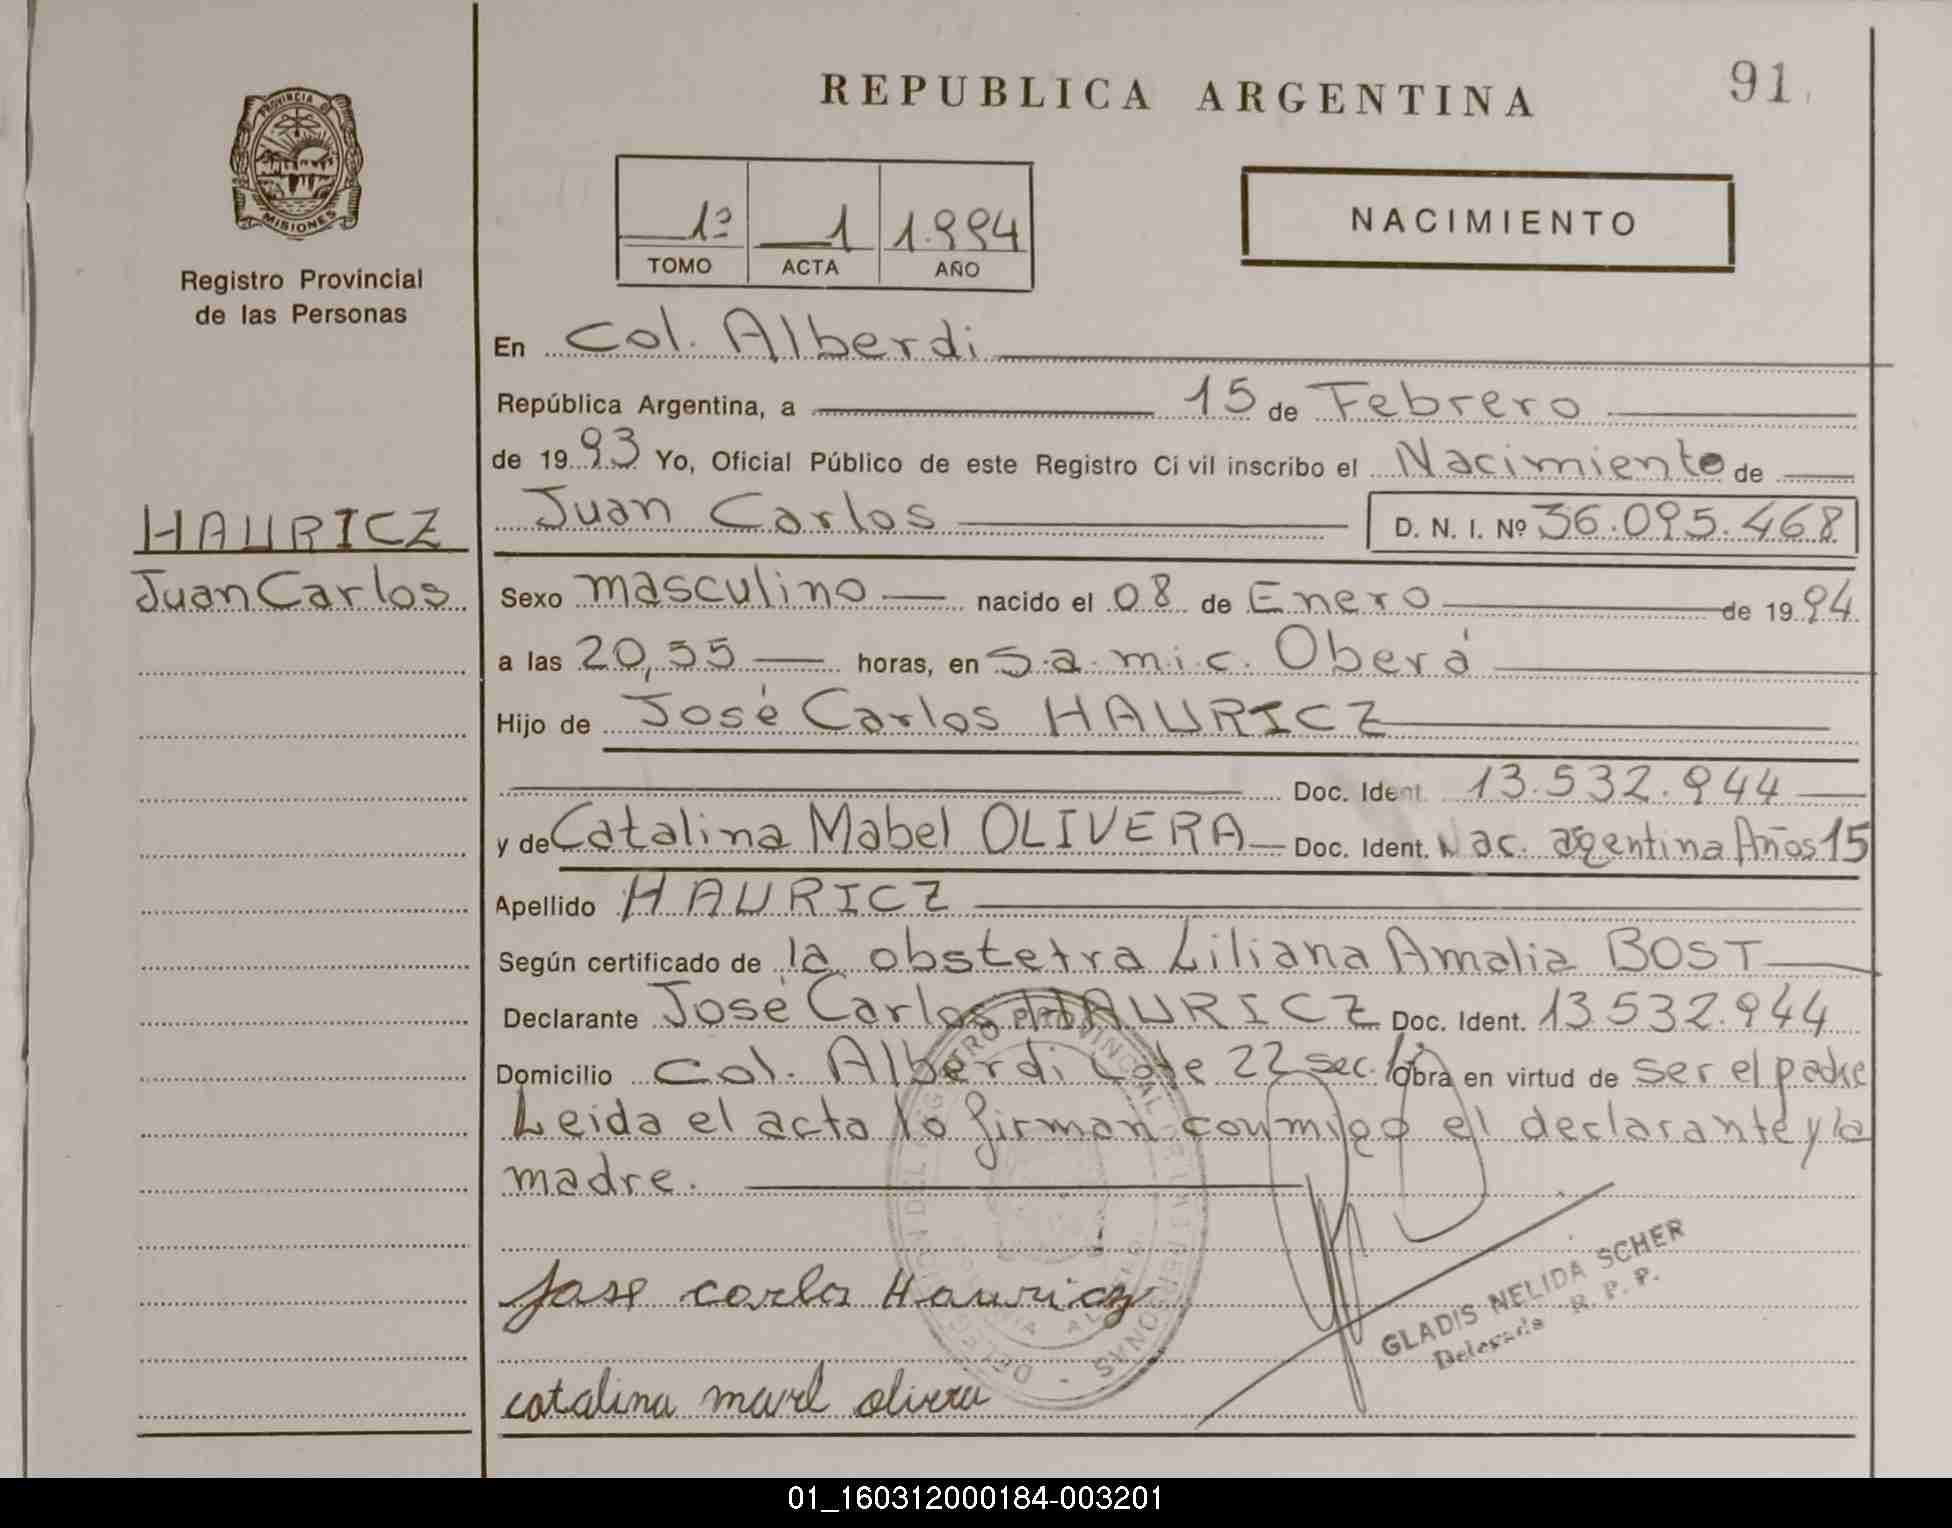 REPUBLICA ARGENTINA
91
PROVINCIA DE
MISIONES
Registro Provincial
de las Personas
1º 1 1.994
TOMO ACTA AÑO
NACIMIENTO
En Col. Alberdi
República Argentina, a 15 de Febrero
de 19 93 Yo, Oficial Público de este Registro Civil inscribo el Nacimiento de
Juan Carlos D. N. I. Nº 36.095.468
HAURICZ
Juan Carlos
Sexo masculino nacido el 08 de Enero de 19 94
a las 20,55 horas, en S.a.m.i.c. Oberá
Hijo de José Carlos HAURICZ
Doc. Ident. 13.532.944
y de Catalina Mabel OLIVERA Doc. Ident. Nac. argentina Años 15
Apellido HAURICZ
Según certificado de la obstetra Liliana Amalia BOST
Declarante José Carlos HAURICZ Doc. Ident. 13.532.944
Domicilio Col. Alberdi Lote 22 sec. Obra en virtud de ser el padre
Leida el acta lo firman conmigo el declarante y la
madre.
Jose carlos Hauricz
GLADIS NELIDA SCHER
Delegada R. P. P.
catalina mavel olivera
01_160312000184-003201